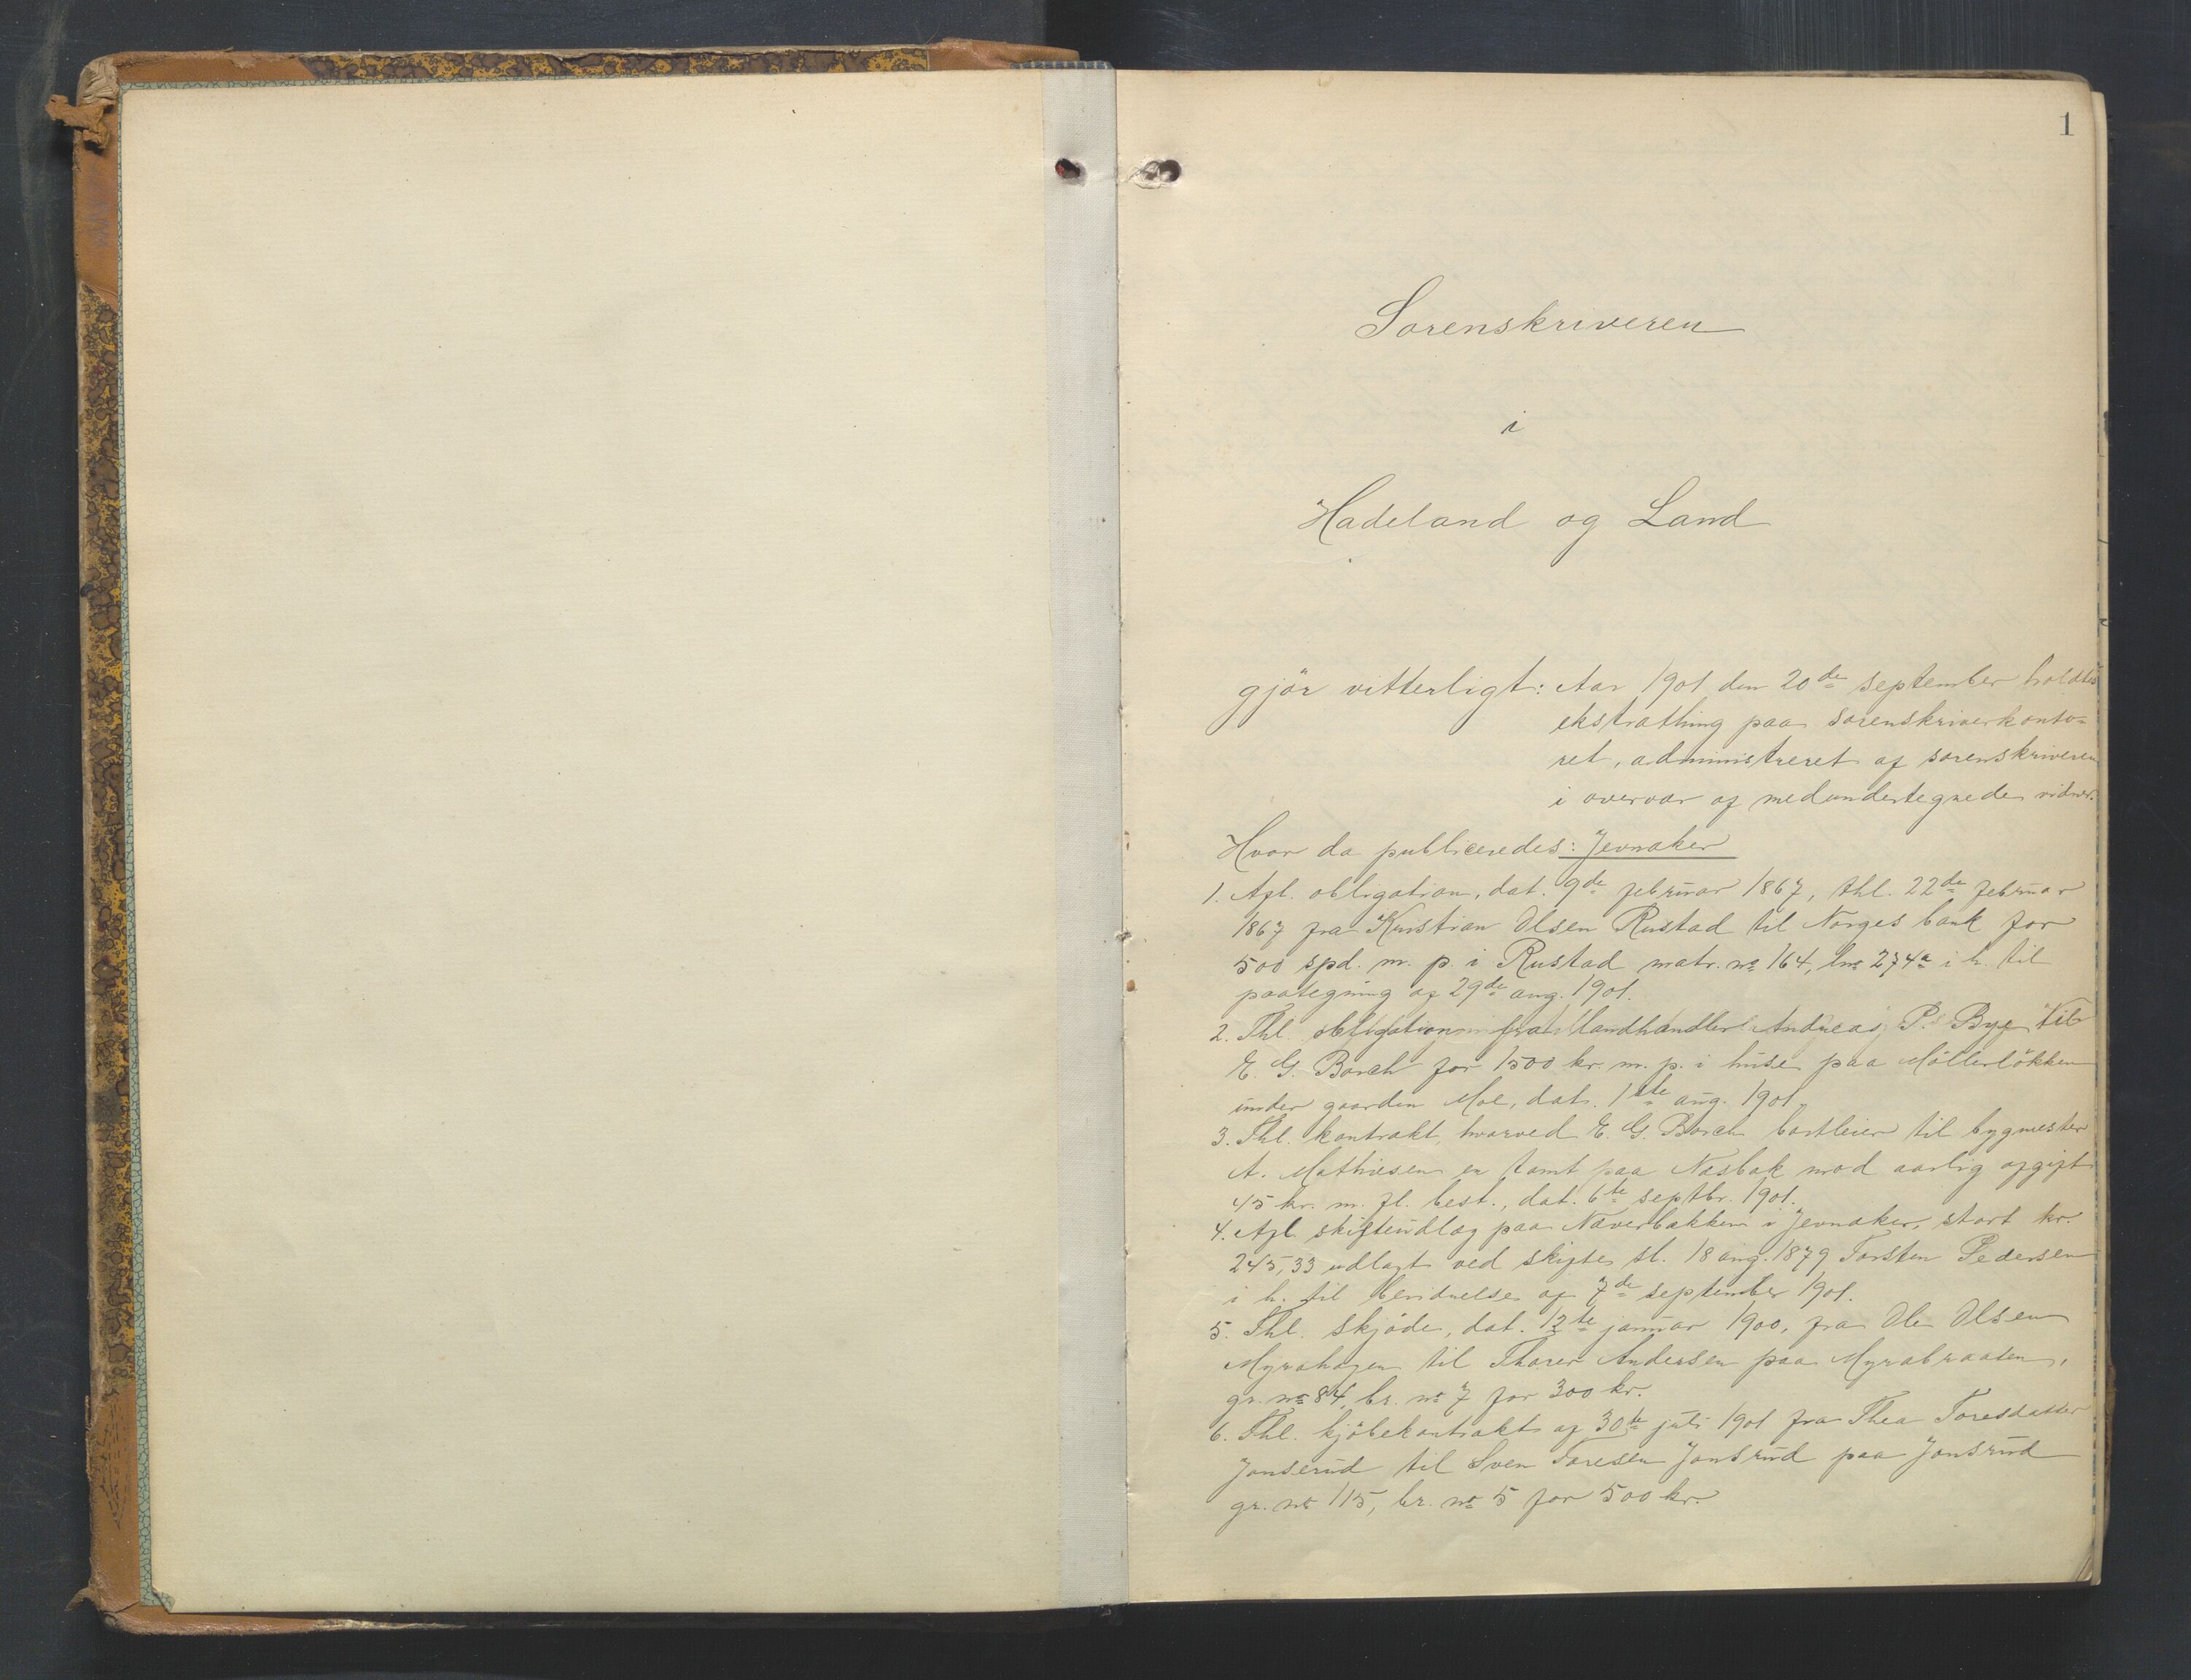 1
Sorenskriveren
i
Hadeland og Land
gjör vitterligt: Aar 1901 den 20de september holdtes
ekstrathing paa sorenskriverkonto=
ret, administreret af sorenskriveren
i overvær af medundertegnede vidner.
Hvor da publiceredes: Jevnaker
1. Afl. obligation, dat. 9de februar 1867, thl. 22de februar
1867 fra Kristian Olsen Rustad til Norges bank for
500 spd. m. p. i Rustad matr. no 164, lno 274a i h. til
paategning af 29de aug. 1901.
2. Thl. obligation fra landhandler Andreas P. Bye til
E. G. Borch for 1500 kr. m. p. i huse paa Möllerlökken
under gaarden Moe, dat. 1ste aug. 1901.
3. Thl. kontrakt, hvorved E. G. Borch bortleier til bygmester
A. Mathisen en tomt paa Næsbak mod aarlig afgift
45 kr. m. fl. best., dat. 6te septbr. 1901.
4. Afl. skifteudlæg paa Næverbakken i Jevnaker, stort kr.
245,33 udlagt ved skifte sl. 18 aug. 1879 Torsten Pedersen
i h. til bevidnelse af 7de september 1901.
5. Thl. skjöde, dat. 12te januar 1900, fra Ole Olsen
Myrahagen til Thorer Andersen paa Myrabraaten,
gr. no 84, br. no 7 for 300 kr.
6. Thl. kjöbekontrakt af 30te juli 1901 fra Thea Toresdatter
Jonserud til Sven Toresen Jonsrud paa Jonsrud
gr. no 115, br. no 5 for 500 kr.